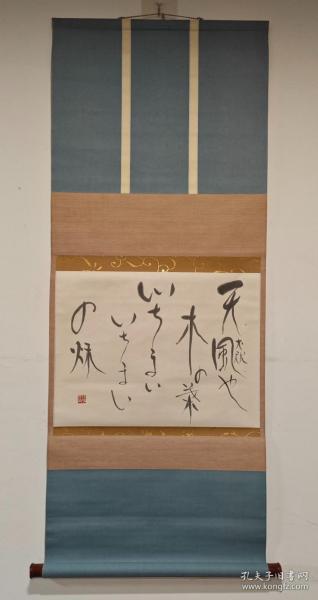 天風や
木の葉
いちまい
いちまい
の秋
孔夫子旧书网
www.kongfz.com